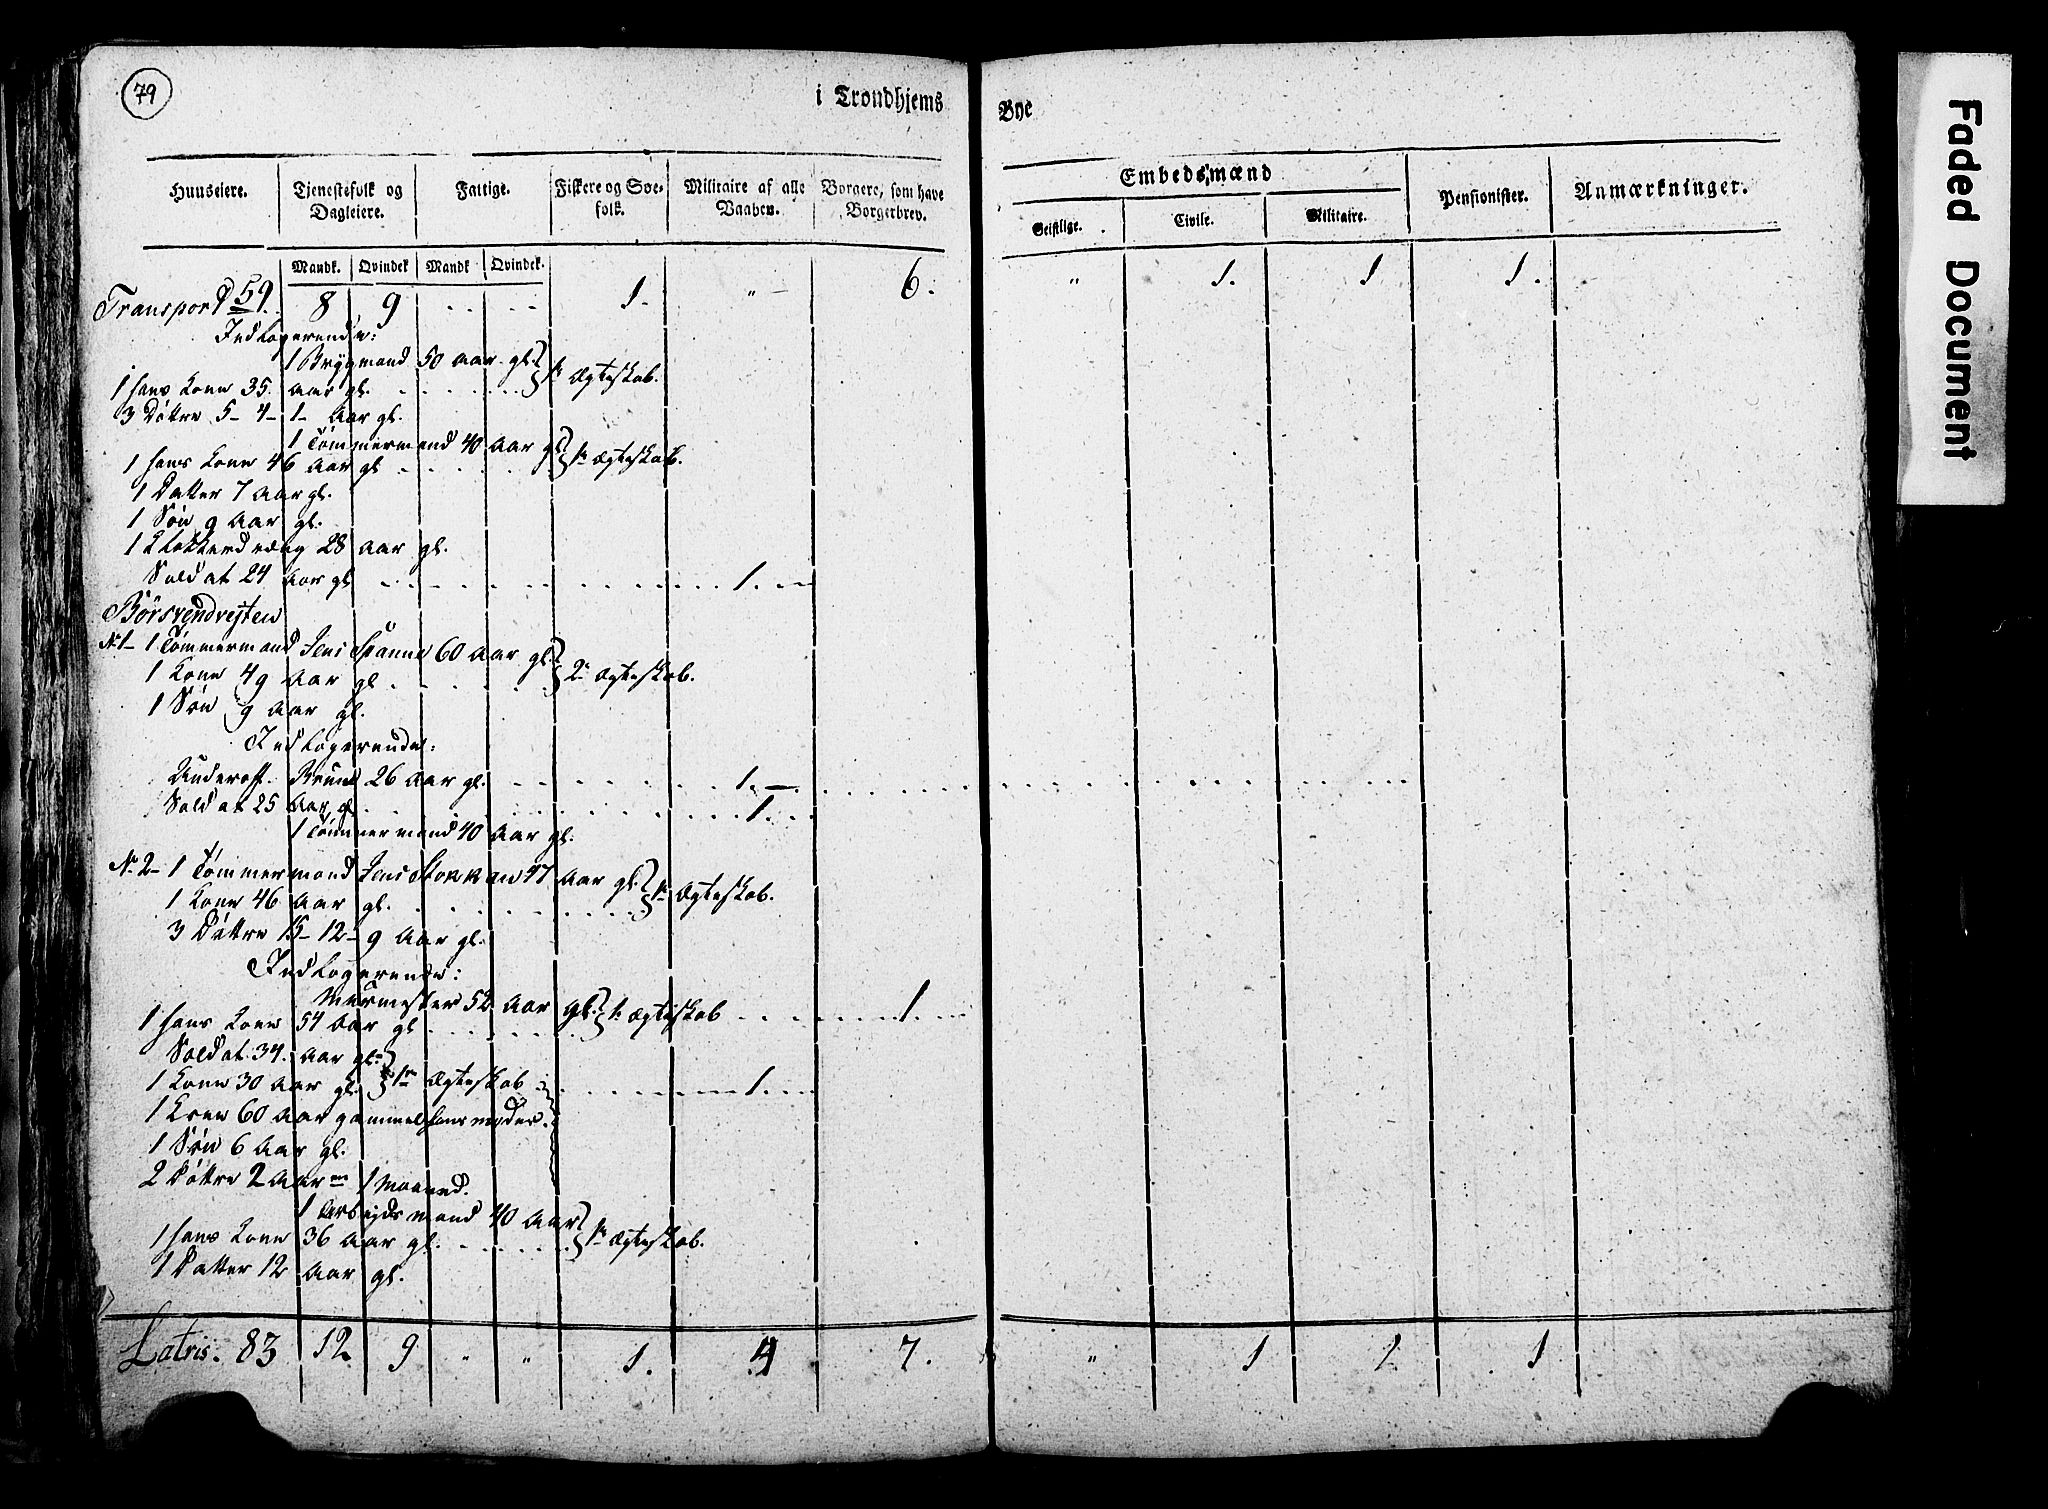 79
i Trondhjems Bye
Huuseiere. Tjenestefolk og Dagleiere. Fattige. Fiskere og Søefolk. Militaire af alle Vaaben. Borgere, som have Borgerbrev. Embedsmænd Pensionister. Anmærkninger.
Geistlige. Civile. Militaire.
Mandk. Qvindek Mandk Qvindek.
Transport 59. 8 9 . . . . 1. " 6. " 1. 1 1.
Indlogerende:
1 Brygmand 50 Aar gl. } 1te Ægteskab.
1 hans Kone 35. Aar gl.
3 Døttre 5- 4- 1- Aar gl.
1 Tømmermand 40 Aar gl. } 1te Ægteskab.
1 hans Kone 46 Aar gl
1 Datter 7 Aar gl.
1 Søn 9 Aar gl.
1 28 Aar gl.
Soldat 24 Aar gl 1.
N. 1- 1 Tømmermand Jens Spanne 60 Aar gl. } 2 Ægteskab.
1 Kone 49 Aar gl
1 Søn 9 Aar gl.
Indlogerende:
Underoff. 26 Aar gl. 1.
Soldat 25 Aar gl 1.
1 Tømmermand 40 Aar gl.
N. 2- 1 Tømmermand Jens Stokkan 47 Aar gl. } 1te Ægteskab.
1 Kone 46 Aar gl.
3 Døttre 15- 12- 9 Aar gl.
Indlogerende:
Murmester 52 Aar gl. } 1. Ægteskab 1.
1 hans Kone 54 Aar gl
Soldat. 34. Aar gl.
1 Kone 30 Aar gl. } 1te Ægteskab 1.
1 Kone 60 Aar gammel hans moder.
1 Søn 6 Aar gl.
2 Døttre 2 Aar 1 Maaned.
1 Arbejdsmand 40 Aar } 1te Ægteskab.
1 hans Kone 36 Aar gl.
1 Datter 12 Aar gl.
Latris. 83 12 9 " " 1. 4 7. " 1 1 1
Faded Document